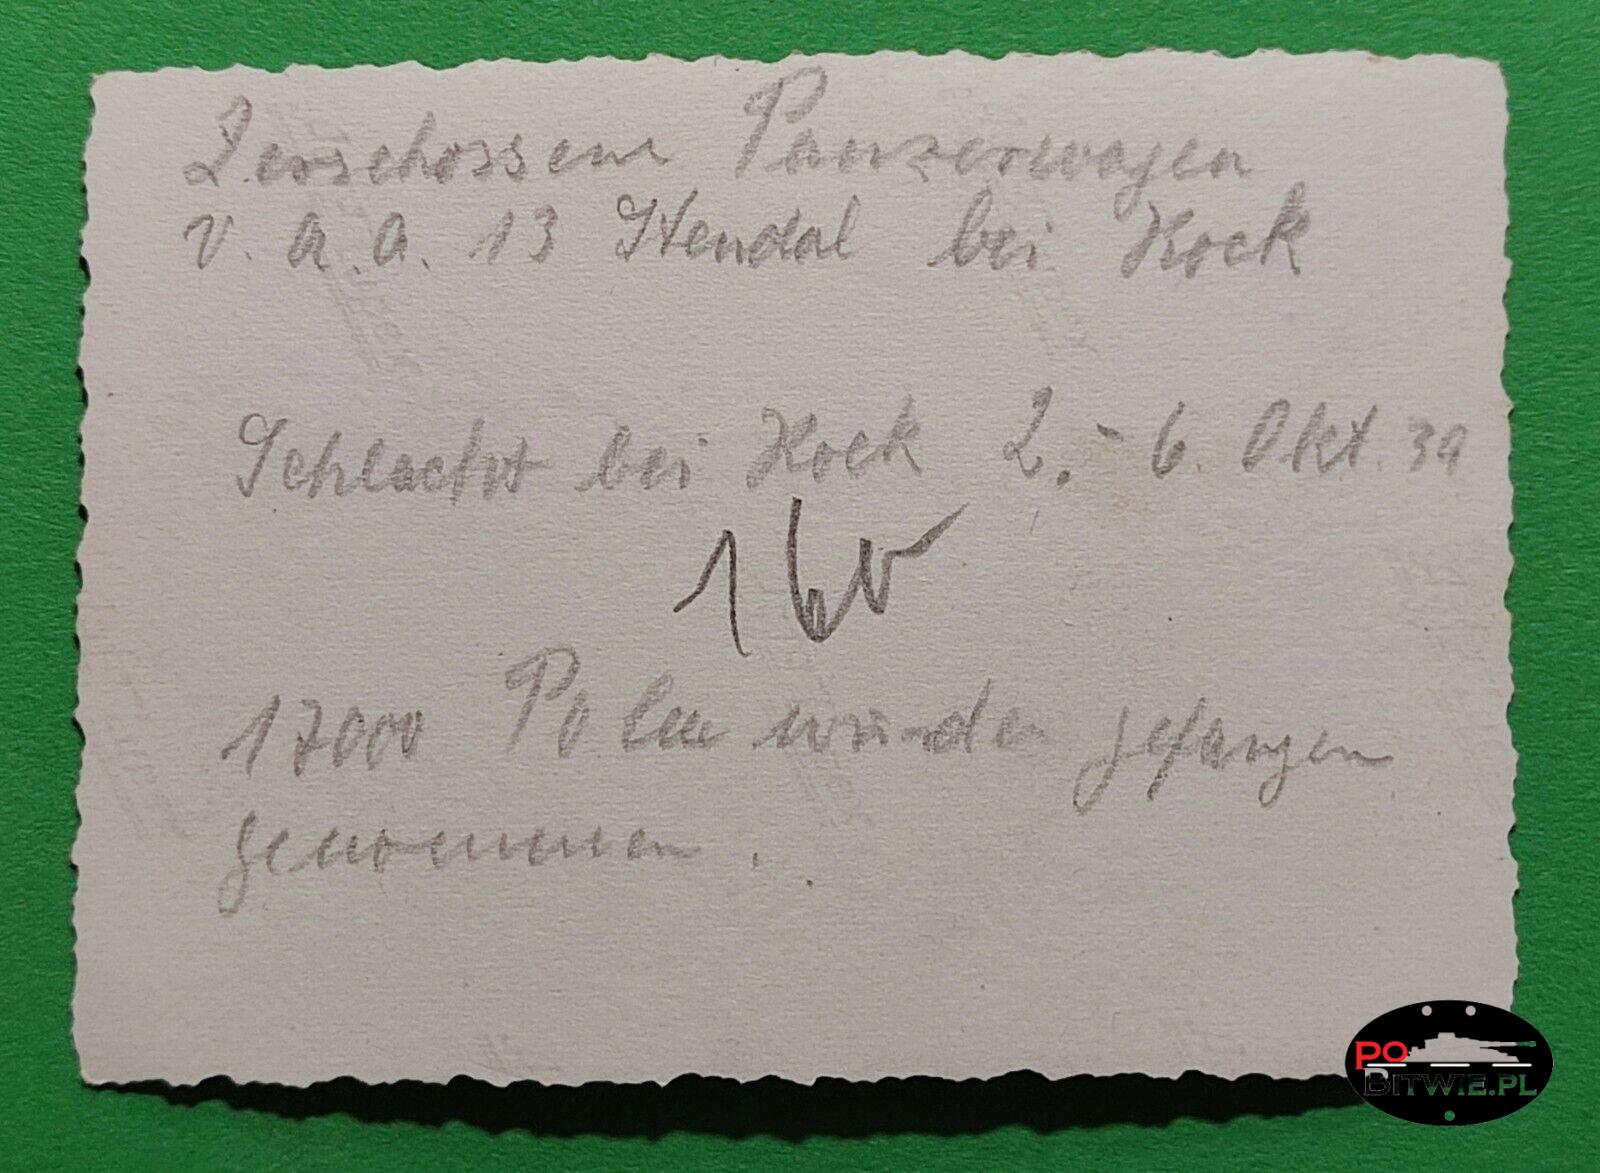 Zerschossene Panzerwagen
v. A. A. 13 Stendal bei Kock
Schlacht bei Kock 2. - 6. Okt. 39
17000 Polen wurden gefangen
genommen.
PO
BITWIE.PL